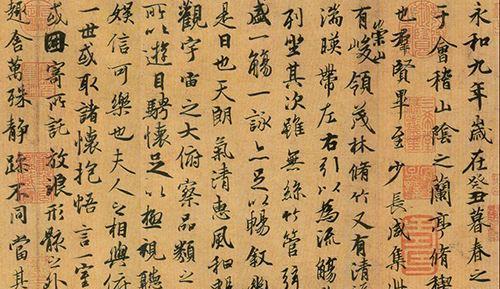 永和九年歲在癸丑暮春之
于會稽山陰之蘭亭脩稧
也羣賢畢至少長咸集此
有崇山峻領茂林脩竹又有清
湍暎帶左右引以為流觴
列坐其次雖無絲竹管弦
盛一觴一詠亦足以暢敘
是日也天朗氣清惠風和暢
觀宇宙之大俯察品類之
所以遊目騁懷足以極視聽
娛信可樂也夫人之相與俯
一世或取諸懷抱悟言一室
或因寄所託放浪形骸之外
趣舍萬殊靜躁不同當其